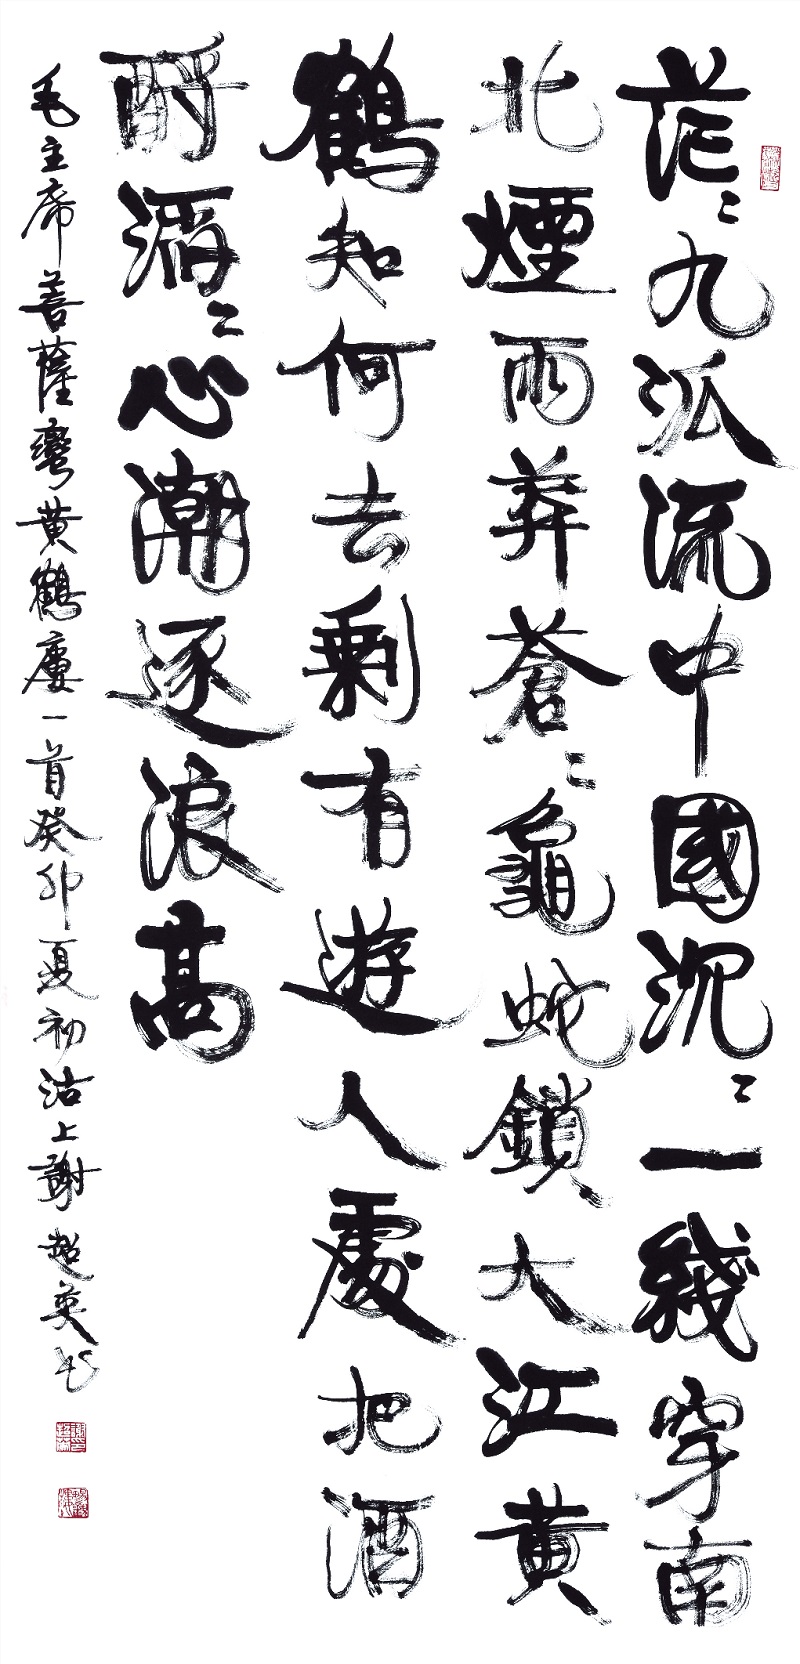 茫〻九派流中國沉〻一綫穿南
北煙雨莽蒼〻龜蛇鎖大江黃
鶴知何去剩有遊人處把酒
酹滔〻心潮逐浪高
毛主席菩薩蠻黃鶴樓一首癸卯夏初沽上謝超英书